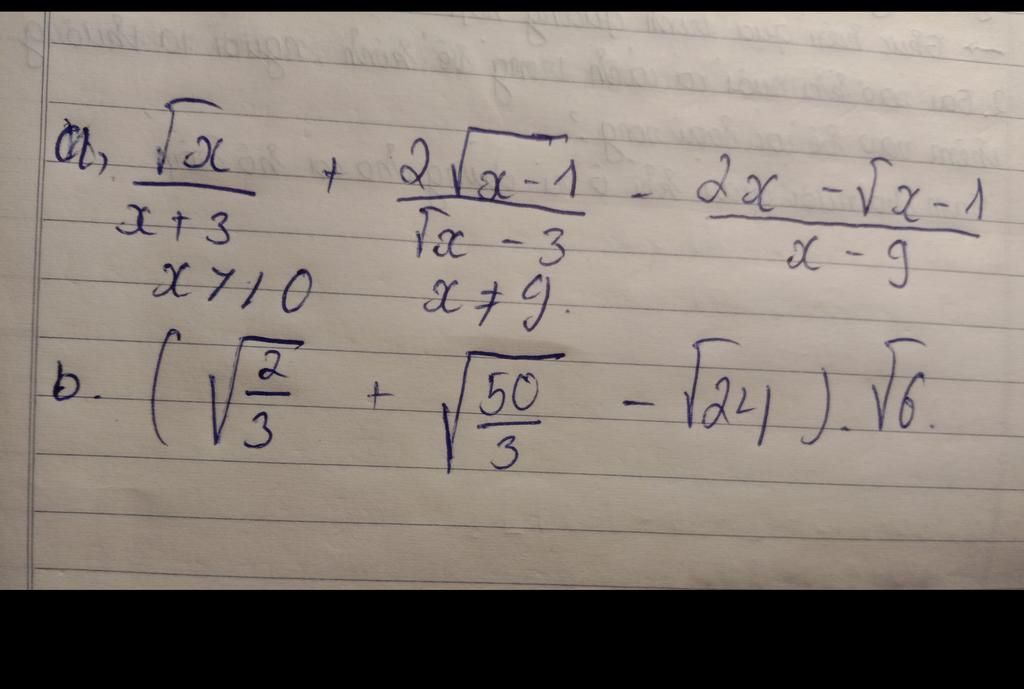 a, √x/(x + 3) + 2√(x - 1)/(√x - 3) - (2x - √x - 1)/(x - 9)
x >/ 0 x ≠ 9.
b. (√(2/3) + √(50/3) - √24) . √6.